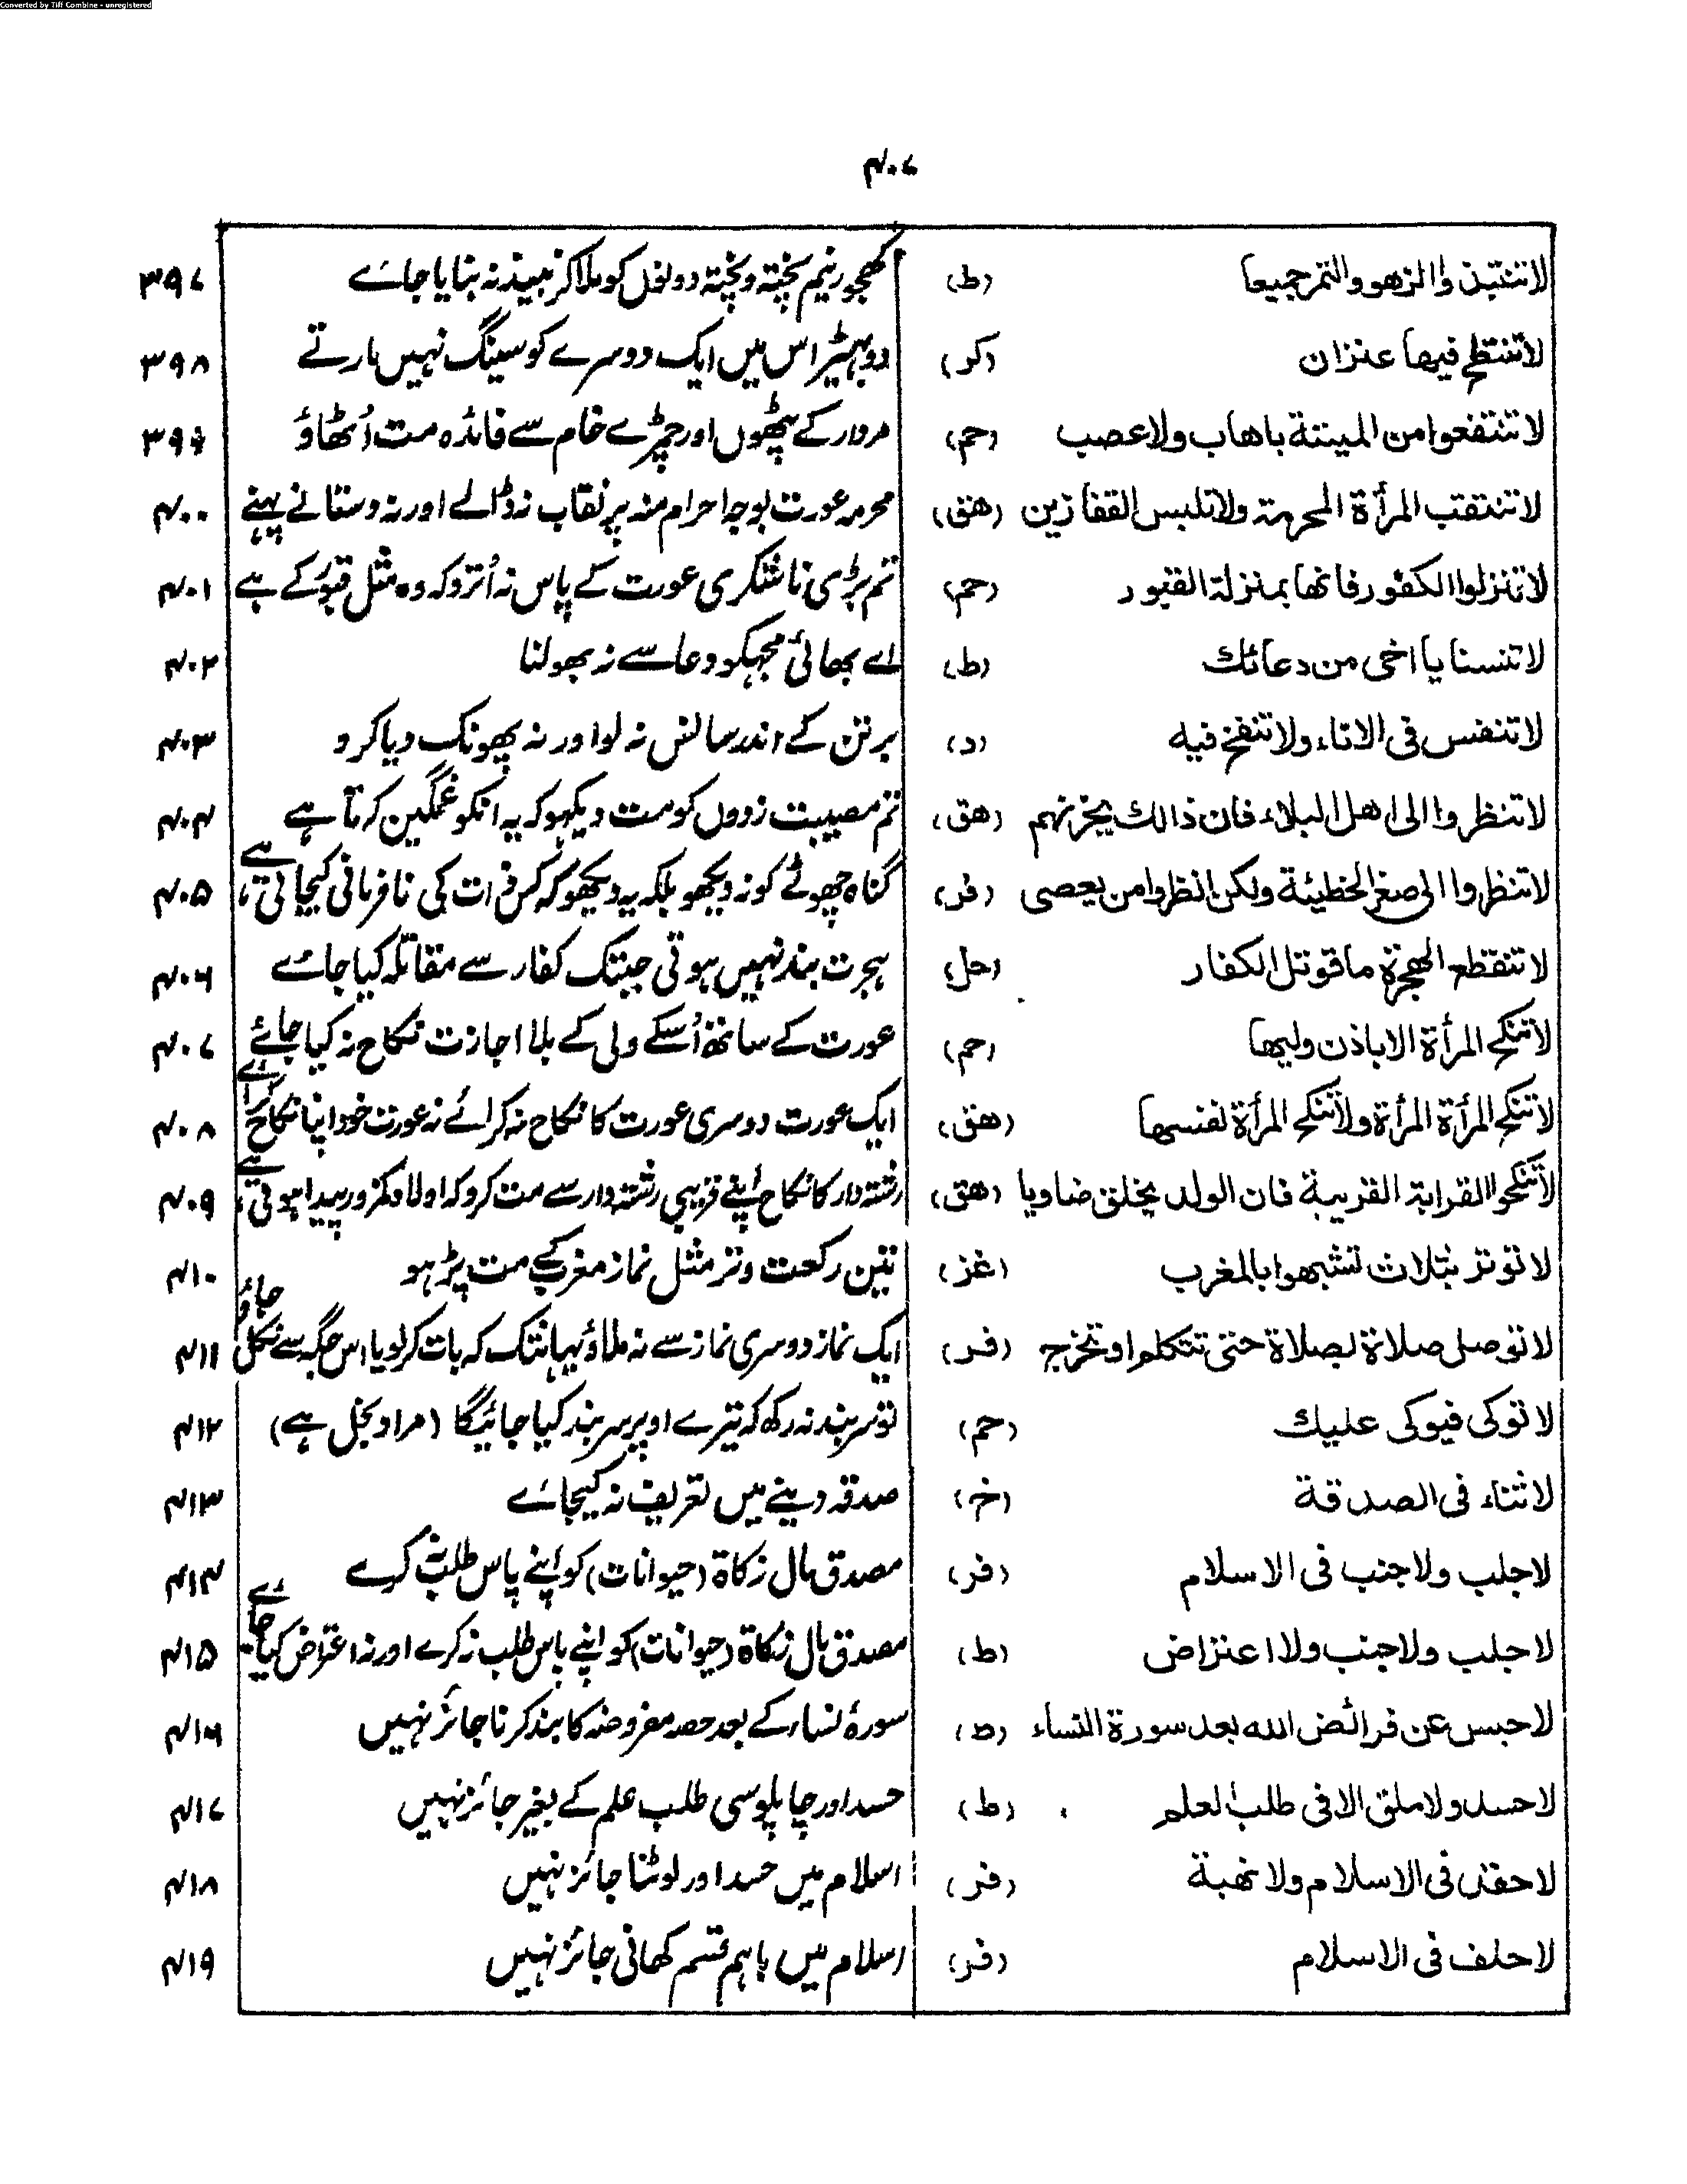 Converted by Tiff Combine - unregistered
۴۰۷
لا تنتبذوا الزهو والتمر جميعا (ط) کھجور نیم پختہ و پختہ دونوں کو ملا کر نبیذ نہ بنایا جائے ۳۹۷
لا تنتطح فيها عنزان (کر) دو بھیڑ اس میں ایک دوسرے کو سینگ نہیں مارتے ۳۹۸
لا تنتفعوا من الميتة باهاب ولا عصب (حم) مردار کے پٹھوں اور چمڑے خام سے فائدہ مت اُٹھاؤ ۳۹۹
لا تنتقب المرأة المحرمة ولا تلبس القفازين (هق) محرمہ عورت بوجہ احرام منہ پر نقاب نہ ڈالے اور نہ دستانے پہنے ۴۰۰
لا تنزلوا الكفور فانها بمنزلة القبور (حم) تم بڑی ناشکری عورت کے پاس نہ اُترو کہ وہ مثل قبور کے ہے ۴۰۱
لا تنسنا يا اخى من دعائك (ط) اے بھائی مجہکو دعا سے نہ بھولنا ۴۰۲
لا تنفس فى الاناء ولا تنفخ فيه (د) برتن کے اندر سانس نہ لو اور نہ پھونک دیا کرو ۴۰۳
لا تنظروا الى اهل البلاء فان ذالك يحزنهم (هق) تم مصیبت زدوں کو مت دیکہو کہ یہ انکو غمگین کرتا ہے ۴۰۴
لا تنظروا الى صغر الخطيئة ولكن انظروا من يعصى (فر) گناہ چھوٹے کو نہ دیکھو بلکہ یہ دیکھو کہ کس ذات کی نافرمانی کیجاتی ہے ۴۰۵
لا تنقطع الهجرة ما قوتل الكفار (حل) ہجرت بند نہیں ہوتی جبتک کفار سے مقاتلہ کیا جائے ۴۰۶
لا تنكح المرأة الا باذن وليها (حم) عورت کے ساتھ اُسکے ولی کے بلا اجازت نکاح نہ کیا جائے ۴۰۷
لا تنكح المرأة المرأة ولا تنكح المرأة نفسها (هق) ایک عورت دوسری عورت کا نکاح نہ کرائے نہ عورت خود اپنا نکاح کرائے ۴۰۸
لا تنكحوا القرابة القريبة فان الولد يخلق ضاويا (هق) رشتہ دار کا نکاح اپنے قریبی رشتہ دار سے مت کرو کہ اولاد کمزور پیدا ہوتی ہے ۴۰۹
لا توتر بثلاث تشبهوا بالمغرب (غز) تین رکعت وتر مثل نماز مغرب کے مت پڑہو ۴۱۰
لا توصل صلاة بصلاة حتى تتكلم او تخرج (فر) ایک نماز دوسری نماز سے نہ ملاؤ یہانتک کہ بات کرلو یا اس جگہ سے نکل جاؤ ۴۱۱
لا توكى فيوكى عليك (حم) تو سر بند نہ رکھ کہ تیرے اوپر سر بند کیا جائیگا (مراد بخل ہے) ۴۱۲
لا ثناء فى الصدقة (خ) صدقہ دینے میں تعریف نہ کیجائے ۴۱۳
لا جلب ولا جنب فى الاسلام (فر) مصدق مال زکاۃ (حیوانات) کو اپنے پاس طلب نہ کرے ۴۱۴
لا جلب ولا جنب ولا اعتراض (ط) مصدق مال زکاۃ (حیوانات) کو اپنے پاس طلب نہ کرے اور نہ اعتراض کیا جائے ۴۱۵
لا حبس عن فرائض الله بعد سورة النساء (ط) سورۂ نساء کے بعد حصہ مفروضہ کا بند کرنا جائز نہیں ۴۱۶
لا حسد ولا ملق الا فى طلب العلم (ط) حسد اور چاپلوسی طلب علم کے بغیر جائز نہیں ۴۱۷
لا حقد فى الاسلام ولا نهبة (فر) اسلام میں حسد اور لوٹنا جائز نہیں ۴۱۸
لا حلف فى الاسلام (فر) اسلام میں باہم قسم کھانی جائز نہیں ۴۱۹